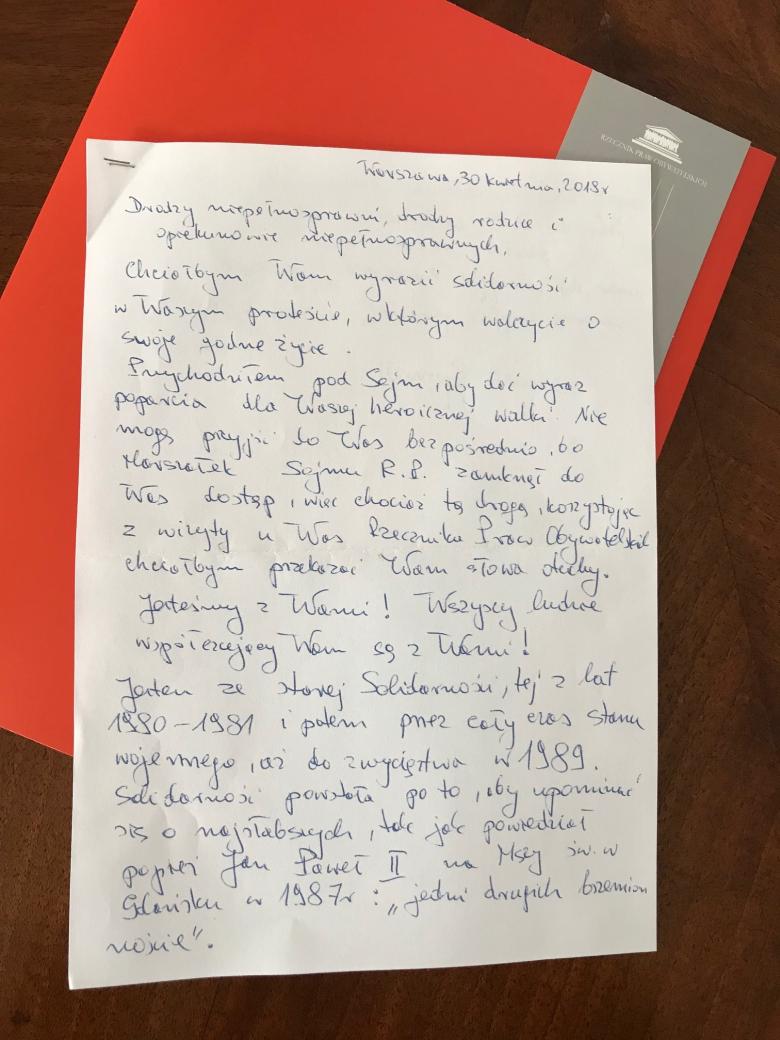 RZECZNIK PRAW OBYWATELSKICH
Warszawa, 30 kwietnia, 2018r
Drodzy niepełnosprawni, drodzy rodzice i
opiekunowie niepełnosprawnych,
Chciałbym Wam wyrazić solidarność
w Waszym proteście, w którym walczycie o
swoje godne życie.
Przychodziłem pod Sejm, aby dać wyraz
poparcia dla Waszej heroicznej walki. Nie
mogę przyjść do Was bezpośrednio, bo
Marszałek Sejmu R.P. zamknął do
Was dostęp, więc chociaż tą drogą, korzystając
z wizyty u Was Rzecznika Praw Obywatelskich
chciałbym przekazać Wam słowa otuchy.
Jesteśmy z Wami! Wszyscy ludzie
współczujący Wam są z Wami!
Jestem ze starej Solidarności, tej z lat
1980-1981 i potem przez cały czas stanu
wojennego, aż do zwycięstwa w 1989.
Solidarność powstała po to, aby upominać
się o najsłabszych, tak jak powiedział
papież Jan Paweł II na Mszy św. w
Gdańsku w 1987r: „jedni drugich brzemiona
noście".